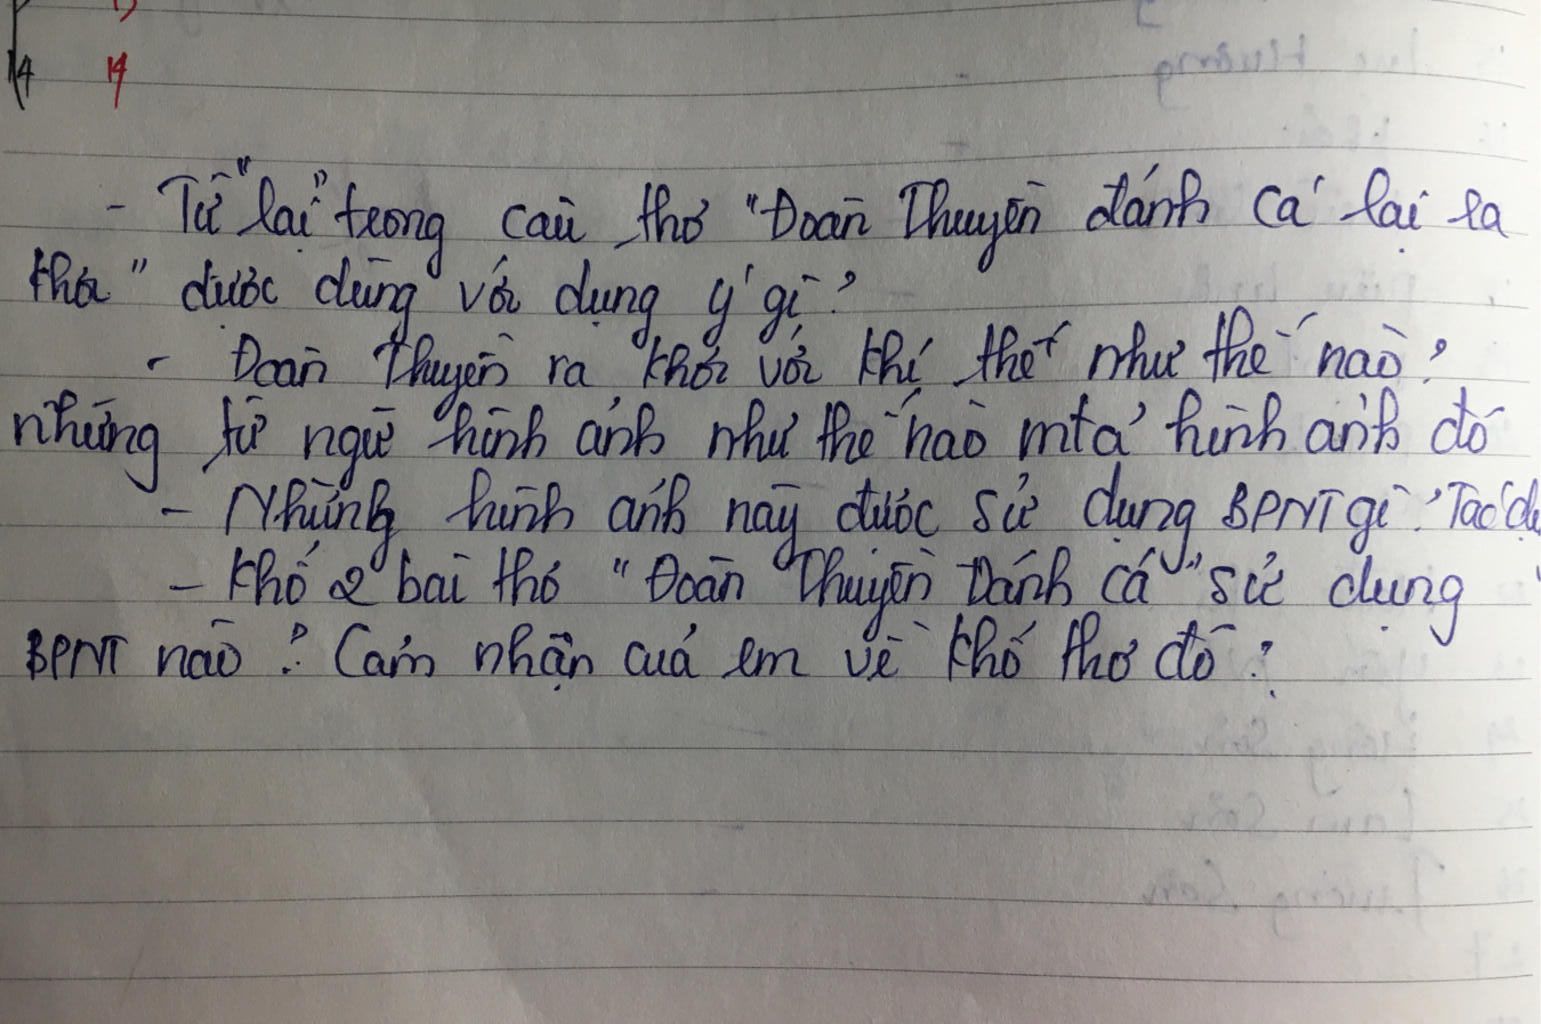 14 14
- Từ "lại" trong câu thơ "Đoàn Thuyền đánh cá lại ra
khơi" được dùng với dụng ý gì?
- Đoàn thuyền ra khơi với khí thế như thế nào?
những từ ngữ hình ảnh như thế nào mtả hình ảnh đó
- Những hình ảnh này được sử dụng BPNT gì? Tác dụ
- Khổ 2 bài thơ "Đoàn Thuyền Đánh cá" sử dụng
BPNT nào? Cảm nhận của em về khổ thơ đó?